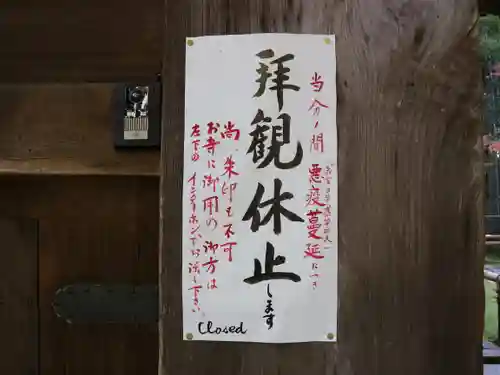 当分ノ間
悪疫蔓延につき
拝観休止します
尚、朱印も不可
お寺に御用の御方は
左下の インターホンで御話し下さい。
Closed